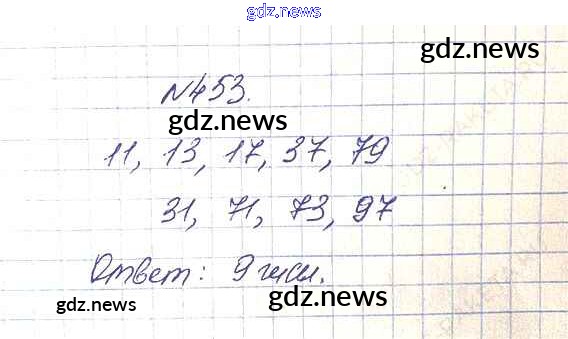 gdz.news
gdz.news
№453.
gdz.news
11, 13, 17, 37, 79
31, 71, 73, 97
Ответ: 9 чисел.
gdz.news
gdz.news